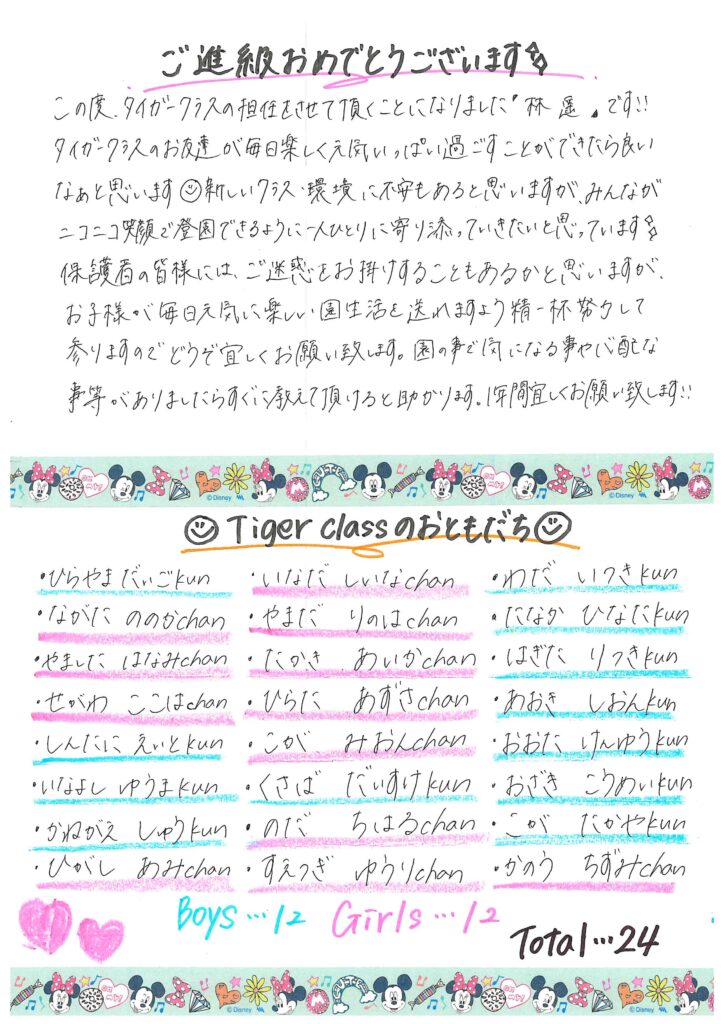 ご進級おめでとうございます
この度、タイガークラスの担任をさせて頂くことになりました『林 遥』です!!
タイガークラスのお友達が毎日楽しく元気いっぱい過ごすことができたら良い
なぁと思います 新しいクラス・環境に不安もあると思いますが、みんなが
ニコニコ笑顔で登園できるように一人ひとりに寄り添っていきたいと思っています
保護者の皆様には、ご迷惑をお掛けすることもあるかと思いますが、
お子様が毎日元気に楽しい園生活を送れますよう精一杯努力して
参りますのでどうぞ宜しくお願い致します。園の事で気になる事や心配な
事等がありましたらすぐに教えて頂けると助かります。1年間宜しくお願い致します!!
©Disney ©Disney
Tiger classのおともだち
・ひらやま だいごkun ・いなだ しいなchan ・わだ いつきkun
・ながた ののかchan ・やまだ りのはchan ・たなか ひなたkun
・やました はなみchan ・たかき あいかchan ・はぎた りつきkun
・せがわ ここはchan ・ひらた あずさchan ・あおき しおんkun
・しんたに えいとkun ・こが みおんchan ・おおた けんゆうkun
・いなよし ゆうまkun ・くさば だいすけkun ・おざき こうめいkun
・かねがえ しゅうkun ・のだ ちはるchan ・こが たかやkun
・ひがし あみchan ・すえつぎ ゆうりchan ・かのう ちずみchan
Boys…12 Girls…12
Total…24
©Disney ©Disney